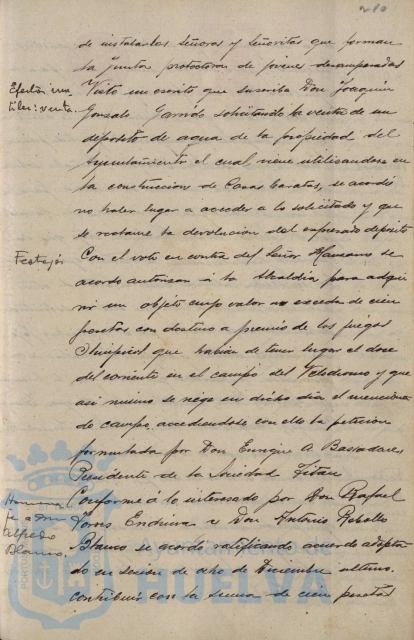 210
de instalarlas Señoras y Señoritas que forman
la Junta protectora de jóvenes desamparadas
Efectos inu
tiles: venta.
Visto un escrito que suscribe Don Joaquin
Gonzalo Garrido solicitando la venta de un
deposito de agua de la propiedad del
Ayuntamiento el cual viene utilizandose en
la construccion de Casas baratas, se acordó
no haber lugar a acceder a lo solicitado y que
se reclame la devolucion del expresado deposito
Festejos
Con el voto en contra del Señor Manzano se
acordo autorizar á la Alcaldia para adqui
rir un objeto cuyo valor no exceda de cien
pesetas con destino a premio de los juegos
Olimpicos que habian de tener lugar el doce
del corriente en el campo del Velodromo y que
asi mismo se riege en dicho dia el menciona
do campo, accediendose con ello la peticion
formulada por Don Enrique A. Bastadares
Presidente de la Sociedad Titan
Homena
je a Don
Alfredo
Blanco.
Conforme á lo interesado por Don Rafael
Torres Endrina y Don Antonio Rebollo
Blanco se acordó ratificando acuerdo adopta
do en sesion de ocho de Diciembre ultimo.
contribuir con la suma de cien pesetas
Ayuntamiento de
HUELVA